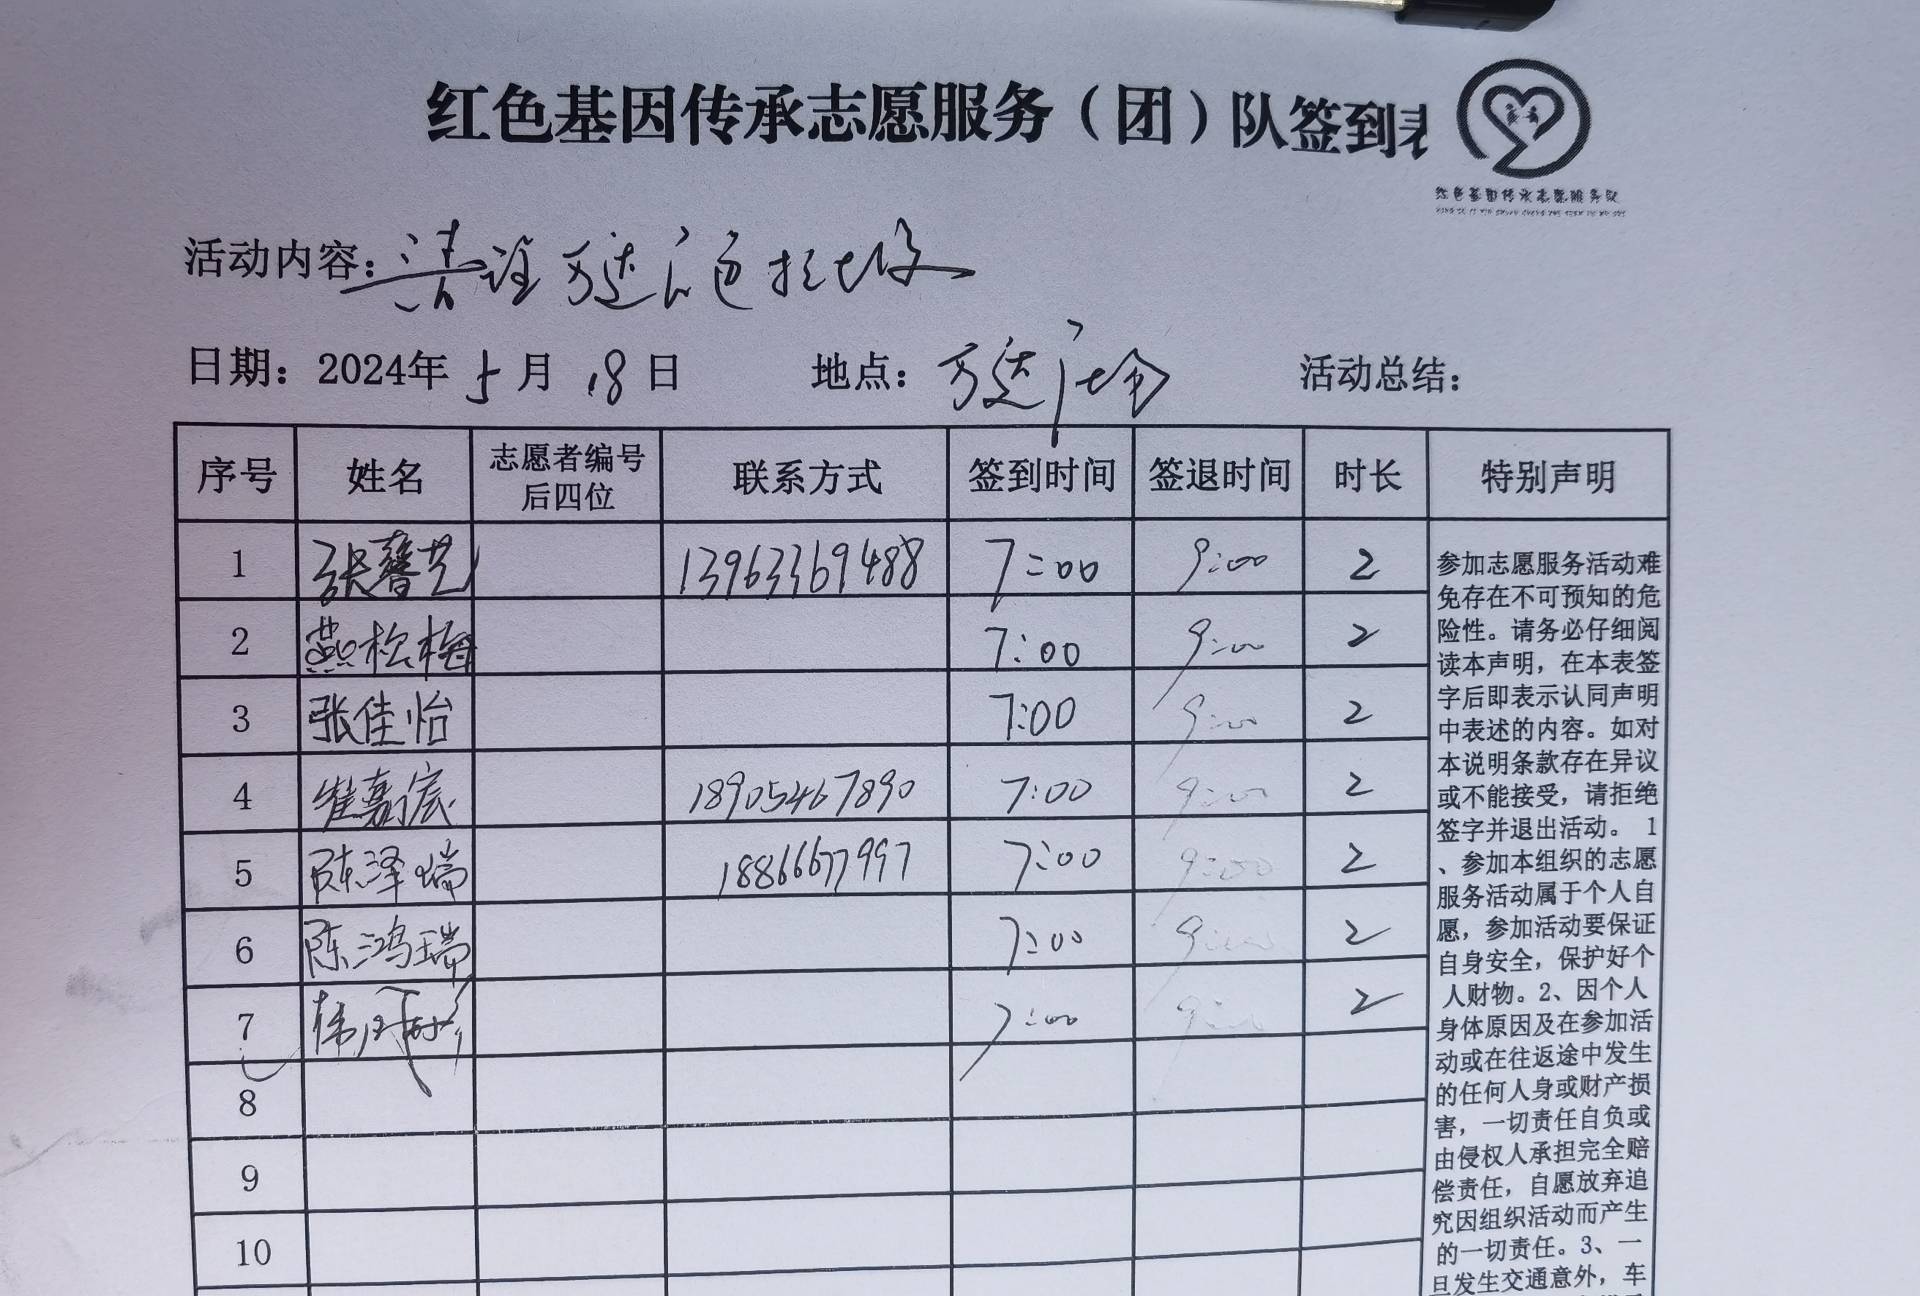 红色基因传承志愿服务（团）队签到表
红色基因传承志愿服务队
活动内容：清理万达广场垃圾
日期：2024年 5月 18日 地点：万达广场 活动总结：
序号 姓名 志愿者编号后四位 联系方式 签到时间 签退时间 时长 特别声明
1 张馨艺 13963369488 7:00 9:00 2
2 燕松梅 7:00 9:00 2
3 张佳怡 7:00 9:00 2
4 崔嘉宸 18905467890 7:00 9:00 2
5 陈泽瑞 18866677997 7:00 9:00 2
6 陈鸿瑞 7:00 9:00 2
7 7:00 9:00 2
8
9
10
参加志愿服务活动难
免存在不可预知的危
险性。请务必仔细阅
读本声明，在本表签
字后即表示认同声明
中表述的内容。如对
本说明条款存在异议
或不能接受，请拒绝
签字并退出活动。 1
、参加本组织的志愿
服务活动属于个人自
愿，参加活动要保证
自身安全，保护好个
人财物。2、因个人
身体原因及在参加活
动或在往返途中发生
的任何人身或财产损
害，一切责任自负或
由侵权人承担完全赔
偿责任，自愿放弃追
究因组织活动而产生
的一切责任。3、一
旦发生交通意外，车